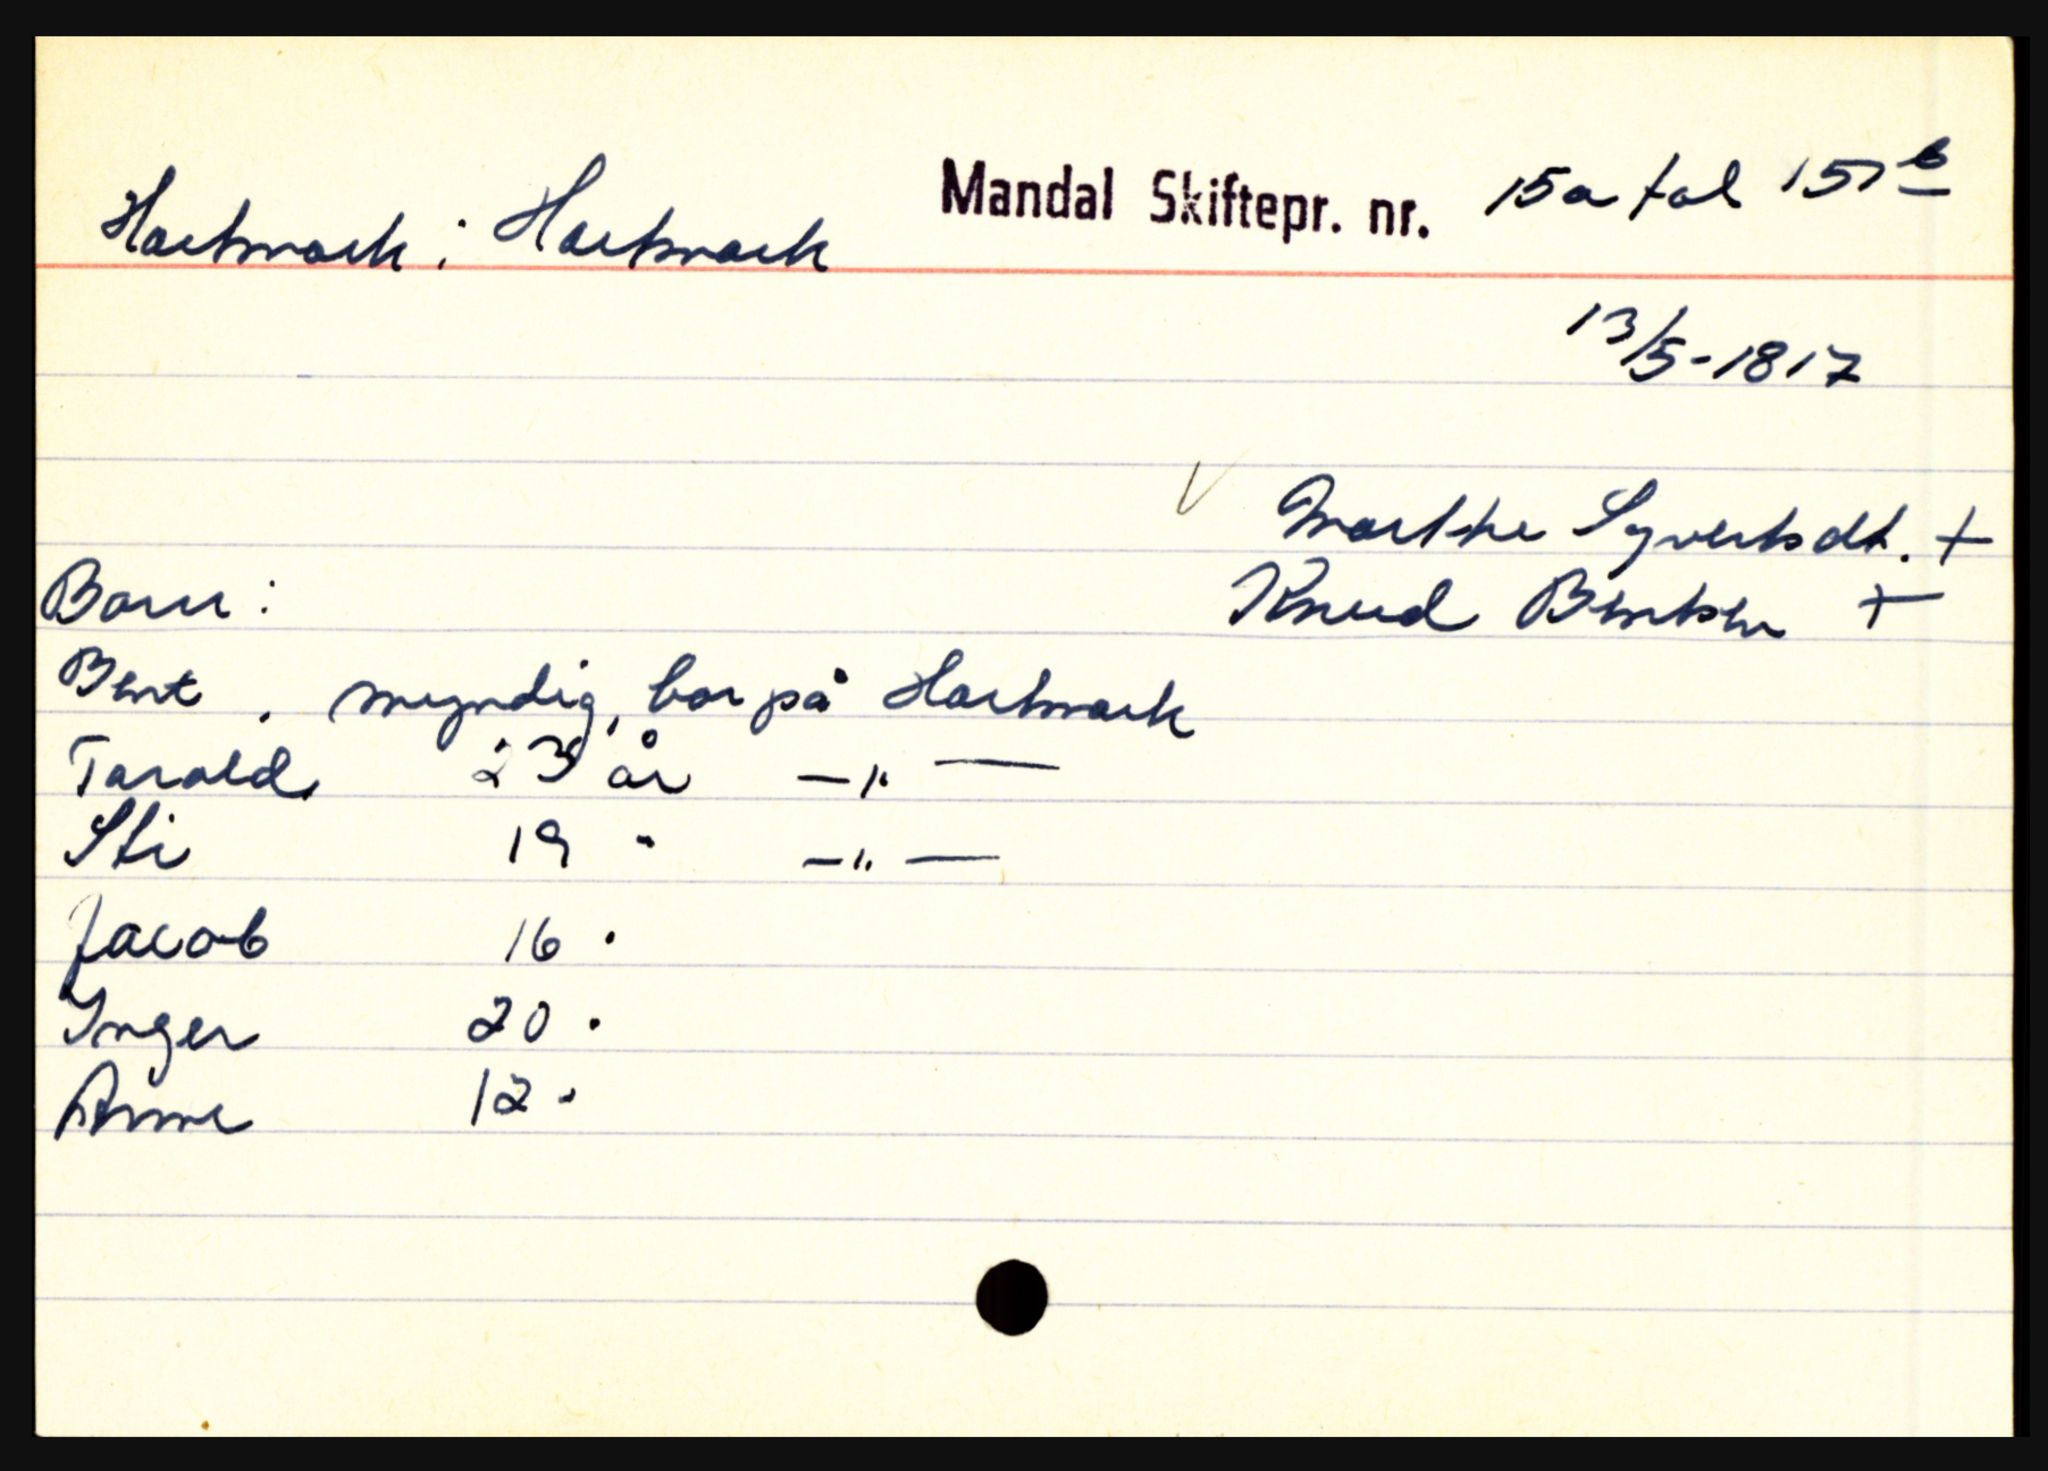 Hartmark i Hartmark Mandal Skiftepr. nr. 15a fol 157b
13/5-1817
Marthe Syvertsdt. +
Born: Knud Bentsen +
Bent, myndig, bor på Hartmark
Tarald 23 år —"—
Sti 19 " —"—
Jacob 16 "
Inger 20 "
Anne 12 "